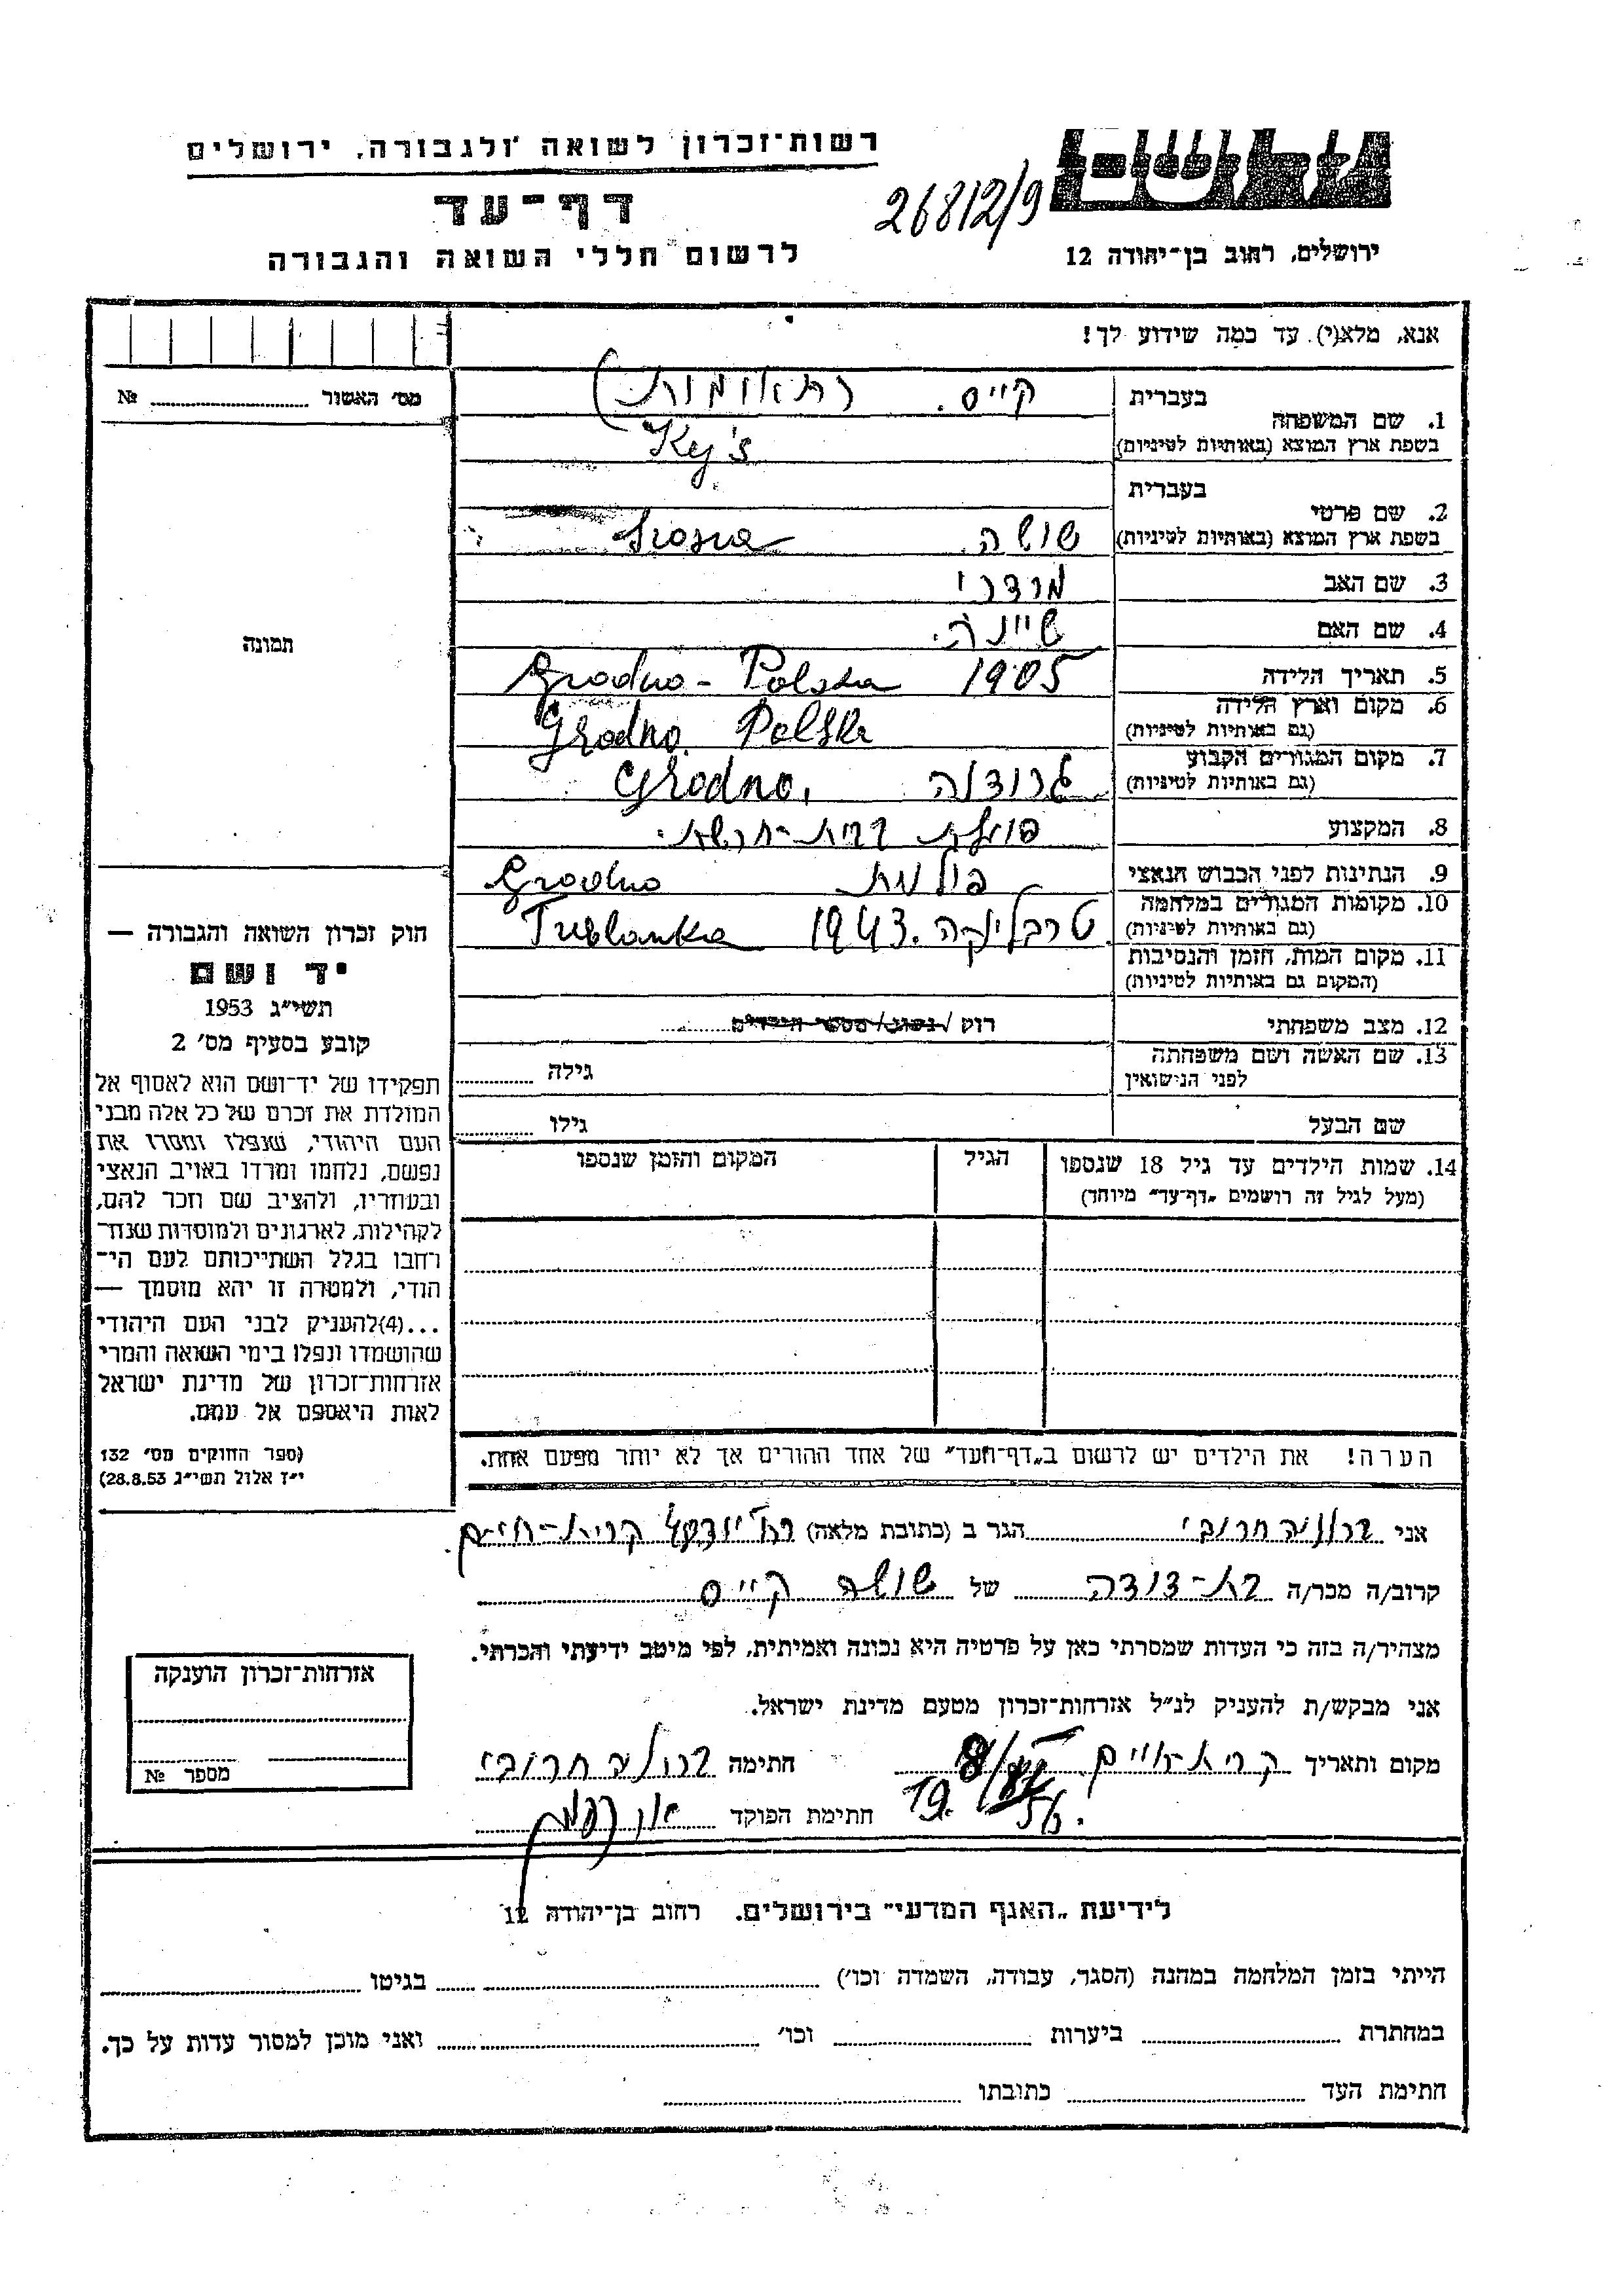 רשות־זכרון לשואה ולגבורה, ירושלים
דף־עד
לרשום חללי השואה והגבורה
26812/9
ירושלים, רחוב בן־יהודה 12
אנא, מלא(י) עד כמה שידוע לך!
מס׳ האשור №
תמונה
1. שם המשפחה
בעברית
קייס. (תאומות)
בשפת ארץ המוצא (באותיות לטיניות)
Kej's
2. שם פרטי
בעברית
בשפת ארץ המוצא (באותיות לטיניות)
שושה
3. שם האב מרדכי
4. שם האם שיינה.
5. תאריך הלידה 1905 Grodno - Polska
6. מקום וארץ הלידה
(גם באותיות לטיניות)
Grodno. Polska
7. מקום המגורים הקבוע
(גם באותיות לטיניות)
גרודנה Grodno,
8. המקצוע פועלת בבית-חרשת.
9. הנתינות לפני הכבוש הנאצי פולנית Grodno
10. מקומות המגורים במלחמה
(גם באותיות לטיניות)
טרבלינקה. 1943
11. מקום המות, הזמן והנסיבות
(המקום גם באותיות לטיניות)
12. מצב משפחתי רוק / נשוי / מספר הילדים
13. שם האשה ושם משפחתה
לפני הנישואין
גילה
שם הבעל גילו
14. שמות הילדים עד גיל 18 שנספו
(מעל לגיל זה רושמים „דף־עד״ מיוחד)
הגיל
המקום והזמן שנספו
הערה! את הילדים יש לרשום ב„דף־העד״ של אחד ההורים אך לא יותר מפעם אחת.
חוק זכרון השואה והגבורה —
יד ושם
תשי״ג 1953
קובע בסעיף מס׳ 2
תפקידו של יד־ושם הוא לאסוף אל
המולדת את זכרם של כל אלה מבני
העם היהודי, שנפלו ומסרו את
נפשם, נלחמו ומרדו באויב הנאצי
ובעוזריו, ולהציב שם וזכר להם,
לקהילות, לארגונים ולמוסדות שנח־
רחבו בגלל השתייכותם לעם הי־
הודי, ולמטרה זו יהא מוסמך —
...(4)להעניק לבני העם היהודי
שהושמדו ונפלו בימי השואה והמרי
אזרחות־זכרון של מדינת ישראל
לאות היאספם אל עמם.
(ספר החוקים מס׳ 132
י״ז אלול תשי״ג 28.8.53)
אני ברוניה חרובי הגר ב (כתובת מלאה) קרית-חיים
קרוב/ה מכר/ה בת-דודה של שושה קייס
מצהיר/ה בזה כי העדות שמסרתי כאן על פרטיה היא נכונה ואמיתית, לפי מיטב ידיעתי והכרתי.
אני מבקש/ת להעניק לנ״ל אזרחות־זכרון מטעם מדינת ישראל.
מקום ותאריך קרית-חיים 19 56. חתימה חרובי
חתימת הפוקד
אזרחות־זכרון הוענקה
מספר №
לידיעת „האגף המדעי״ בירושלים. רחוב בן־יהודה 12
הייתי בזמן המלחמה במחנה (הסגר, עבודה, השמדה וכו׳) בגיטו
במחתרת ביערות וכו׳ ואני מוכן למסור עדות על כך.
חתימת העד כתובתו